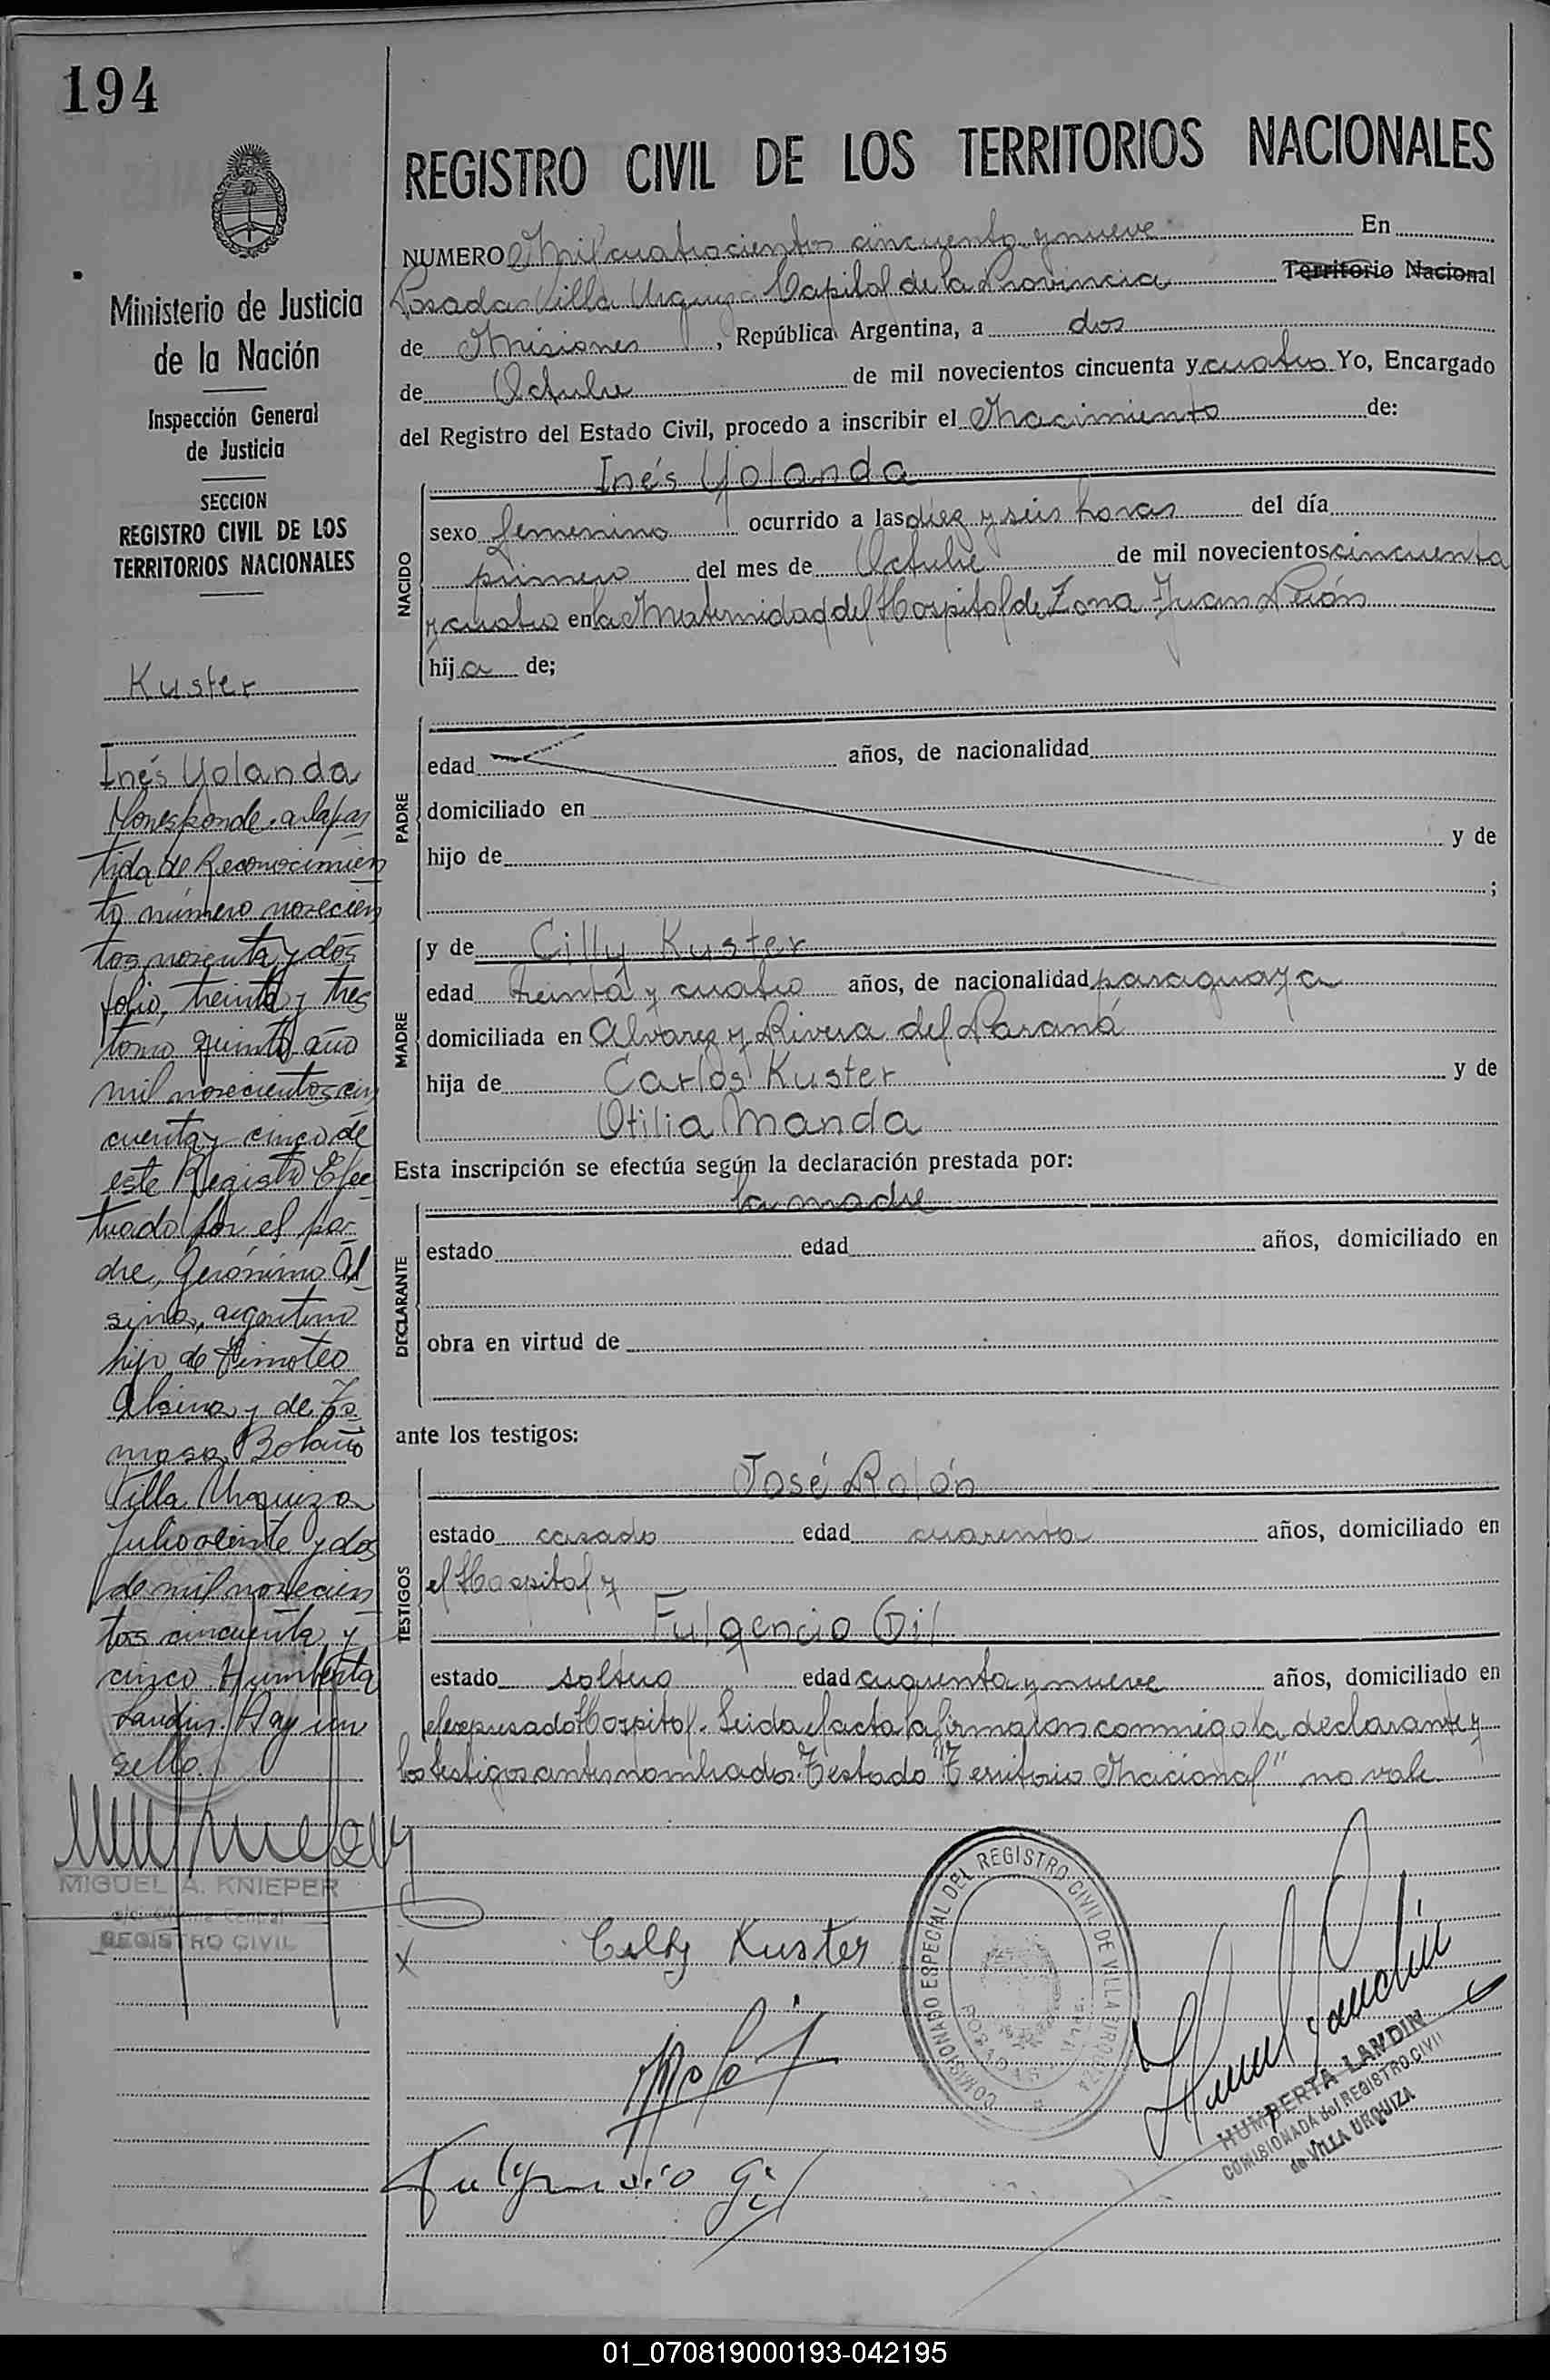 194
REGISTRO CIVIL DE LOS TERRITORIOS NACIONALES
NUMERO Mil cuatrocientos cincuenta y nueve En
Posadas Villa Urquiza Capital de la Provincia Territorio Nacional
de Misiones, República Argentina, a dos
de Octubre de mil novecientos cincuenta y cuatro Yo, Encargado
del Registro del Estado Civil, procedo a inscribir el Nacimiento de:
NACIDO
Inés Yolanda
sexo femenino ocurrido a las diez y seis horas del día
primero del mes de Octubre de mil novecientos cincuenta
y cuatro en la Maternidad del Hospital de Zona Juan Perón
hija de;
PADRE
edad años, de nacionalidad
domiciliado en
hijo de y de
;
MADRE
y de Cilly Kuster
edad treinta y cuatro años, de nacionalidad paraguaya
domiciliada en Alvarez y Rivera del Paraná
hija de Carlos Kuster y de
Otilia Manda
Esta inscripción se efectúa según la declaración prestada por:
DECLARANTE
la madre
estado edad años, domiciliado en
obra en virtud de
ante los testigos:
TESTIGOS
José Rolón
estado casado edad cuarenta años, domiciliado en
el Hospital y
Fulgencio Gil
estado soltero edad cuarenta y nueve años, domiciliado en
el expresado Hospital. Leida el acta la firmaron conmigo la declarante y
los testigos antes nombrados. Testado "Territorio Nacional" no vale
Cilly Kuster
Fulgencio Gil
COMISIONADO ESPECIAL DEL REGISTRO CIVIL DE VILLA URQUIZA
POSADAS
HUMBERTA LANDIN
COMISIONADA del REGISTRO CIVIL
de VILLA URQUIZA
Ministerio de Justicia
de la Nación
Inspección General
de Justicia
SECCION
REGISTRO CIVIL DE LOS
TERRITORIOS NACIONALES
Kuster
Inés Yolanda
Corresponde a la par
tida de Reconocimien
to número novecien
tos noventa y dos
folio, treinta y tres
tomo quinto año
mil novecientos cin
cuenta y cinco de
este Registro Efec
tuado por el pa-
dre, Gerónimo Al
sina, argentino
hijo de Timoteo
Alsina y de To
masa Bolaño
Villa Urquiza
Julio veinte y dos
de mil novecien
tos cincuenta y
cinco Humberta
Landin. Hay un
sello.
MIGUEL A. KNIEPER
REGISTRO CIVIL
01_070819000193-042195